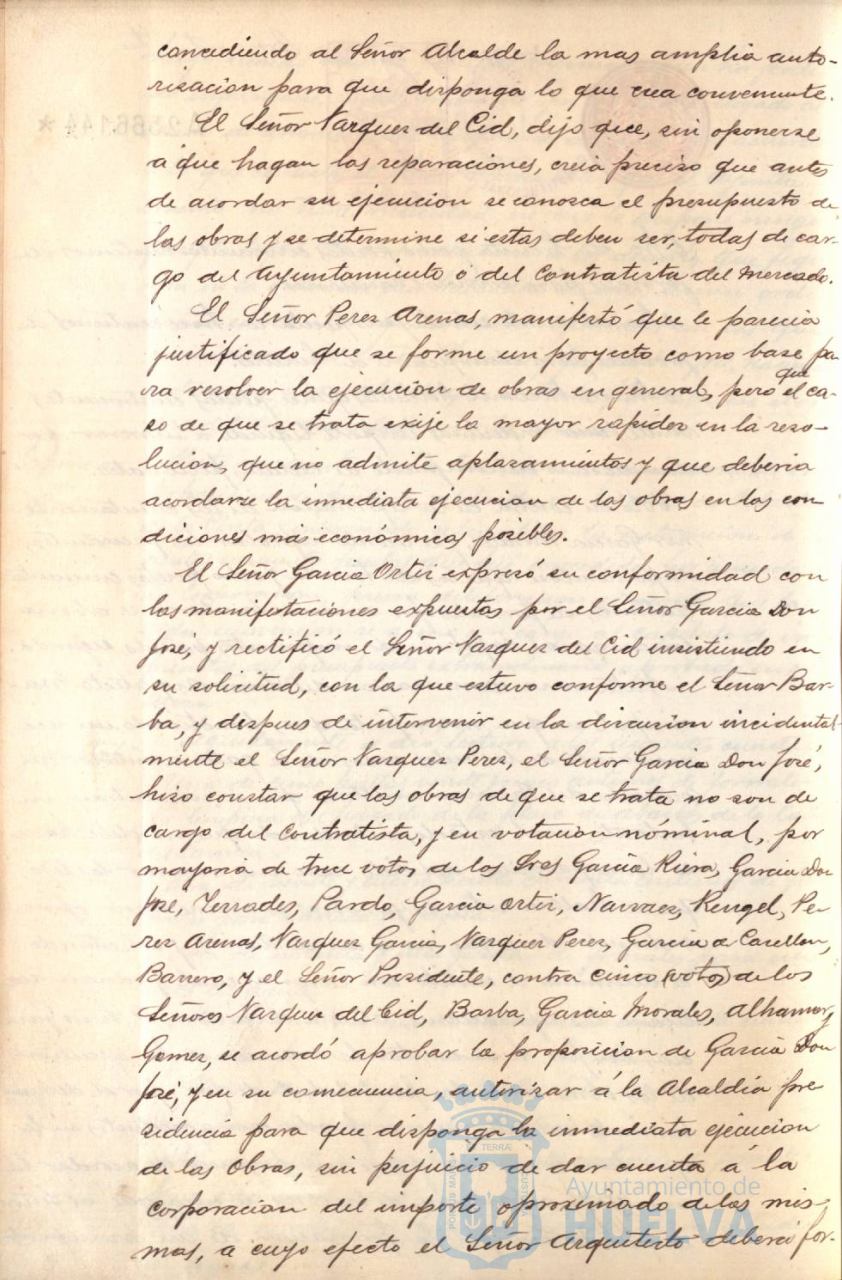 concediendo al Señor Alcalde la mas amplia auto-
risacion para que disponga lo que crea conveniente.
El Señor Vazquez del Cid, dijo que, sin oponerse
a que hagan las reparaciones, creia preciso que antes
de acordar su ejecucion se conosca el presupuesto de
las obras y se determine si estas deben ser, todas de car-
go del Ayuntamiento o del Contratista del Mercado.
El Señor Perez Arenas, manifestó que le parecia
justificado que se forme un proyecto como base pa-
ra resolver la ejecucion de obras en general, pero que el ca-
so de que se trata exije la mayor rapidez en la reso-
lucion, que no admite aplazamientos y que deberia
acordarse la inmediata ejecucion de las obras en las con
diciones más económicas posibles.
El Señor Garcia Ortiz expresó su conformidad con
las manifestaciones expuestas por el Señor Garcia Don
José, y rectificó el Señor Vazquez del Cid insistiendo en
su solicitud, con la que estuvo conforme el Señor Bar-
ba, y despues de intervenir en la discusion incidental-
mente el Señor Vazquez Perez, el Señor Garcia Don José,
hizo constar que las obras de que se trata no son de
cargo del Contratista, y en votacion nóminal, por
mayoria de trece votos de los Sres Garcia Riera, Garcia Don
José, Terrades, Pardo, Garcia Ortiz, Narvaez, Rengel, Pe-
rez Arenas, Vazquez Garcia, Vazquez Perez, Garcia de Casellon,
Barrero, y el Señor Presidente, contra cinco (votos) de los
Señores Vazquez del Cid, Barba, Garcia Morales, Alhamar y
Gomez, se acordó aprobar la proposicion de Garcia Don
José, y en su consecuencia, autorizar á la Alcaldia pre
sidencia para que disponga la inmediata ejecucion
de las Obras, sin perjuicio de dar cuenta á la
Corporacion del importe aproximado de las mis-
mas, a cuyo efecto el Señor Arquitecto deberá for-
Ayuntamiento de
HUELVA